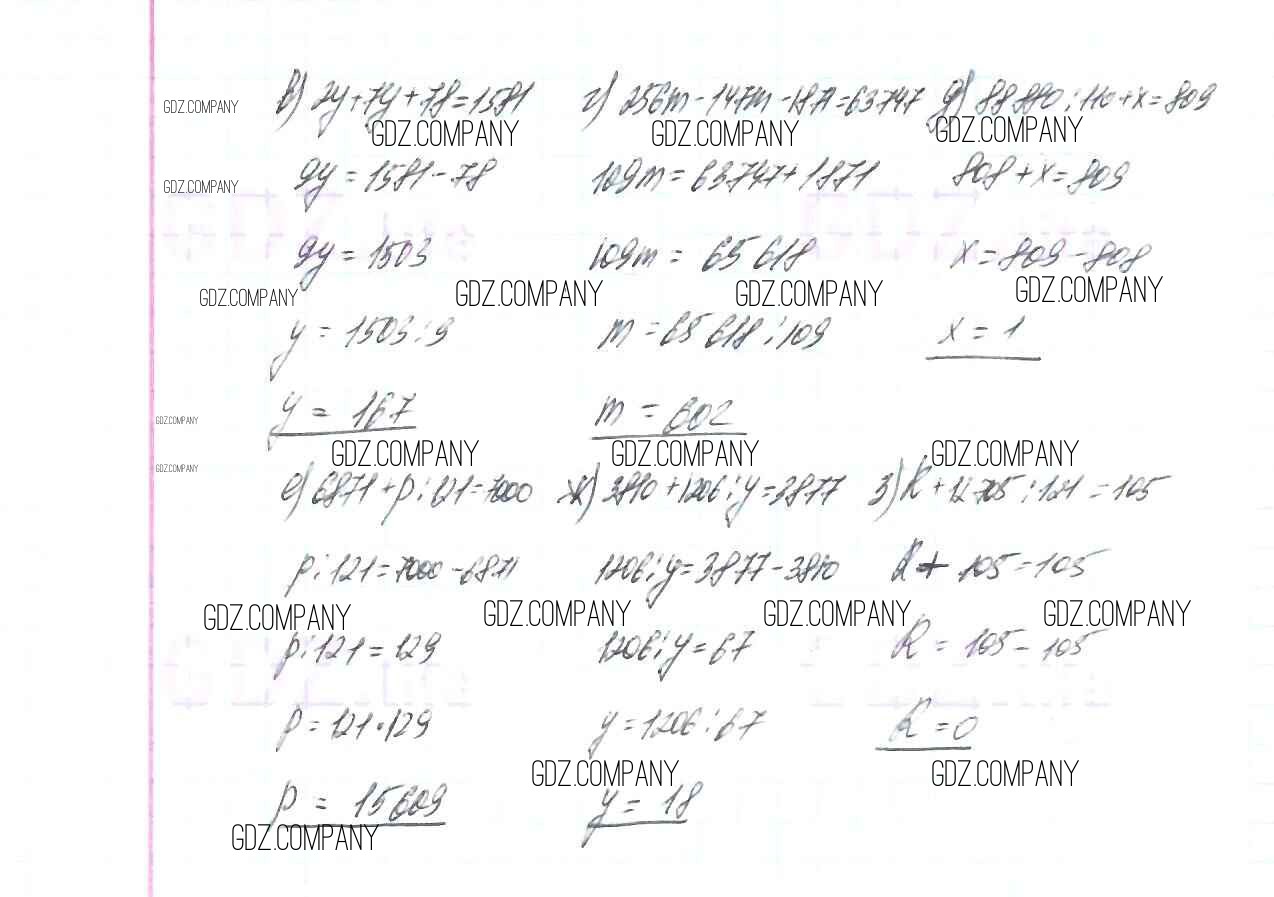 в) 2y+7y+78=1581 г) 256m-147m-1871=63747 д) 88880:110+x=809
GDZ.COMPANY
GDZ.COMPANY GDZ.COMPANY GDZ.COMPANY
9y=1581-78 109m=63747+1871 808+x=809
GDZ.COMPANY
9y=1503 109m=65618 x=809-808
GDZ.COMPANY GDZ.COMPANY GDZ.COMPANY GDZ.COMPANY
y=1503:9 m=65618:109 x=1
y=167 m=602
GDZ.COMPANY
GDZ.COMPANY GDZ.COMPANY GDZ.COMPANY
GDZ.COMPANY
е) 6871+p:121=7000 ж) 3810+1206:y=3877 з) k+12705:121=105
p:121=7000-6871 1206:y=3877-3810 k+105=105
GDZ.COMPANY GDZ.COMPANY GDZ.COMPANY GDZ.COMPANY
p:121=129 1206:y=67 k=105-105
p=121·129 y=1206:67 k=0
GDZ.COMPANY GDZ.COMPANY
p=15609 y=18
GDZ.COMPANY